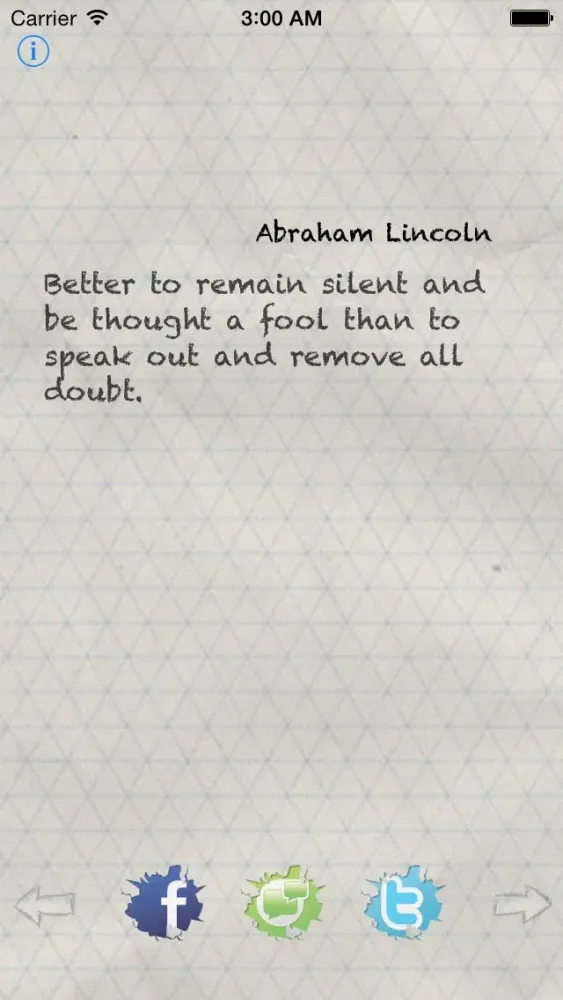 Carrier 3:00 AM
Abraham Lincoln
Better to remain silent and
be thought a fool than to
speak out and remove all
doubt.